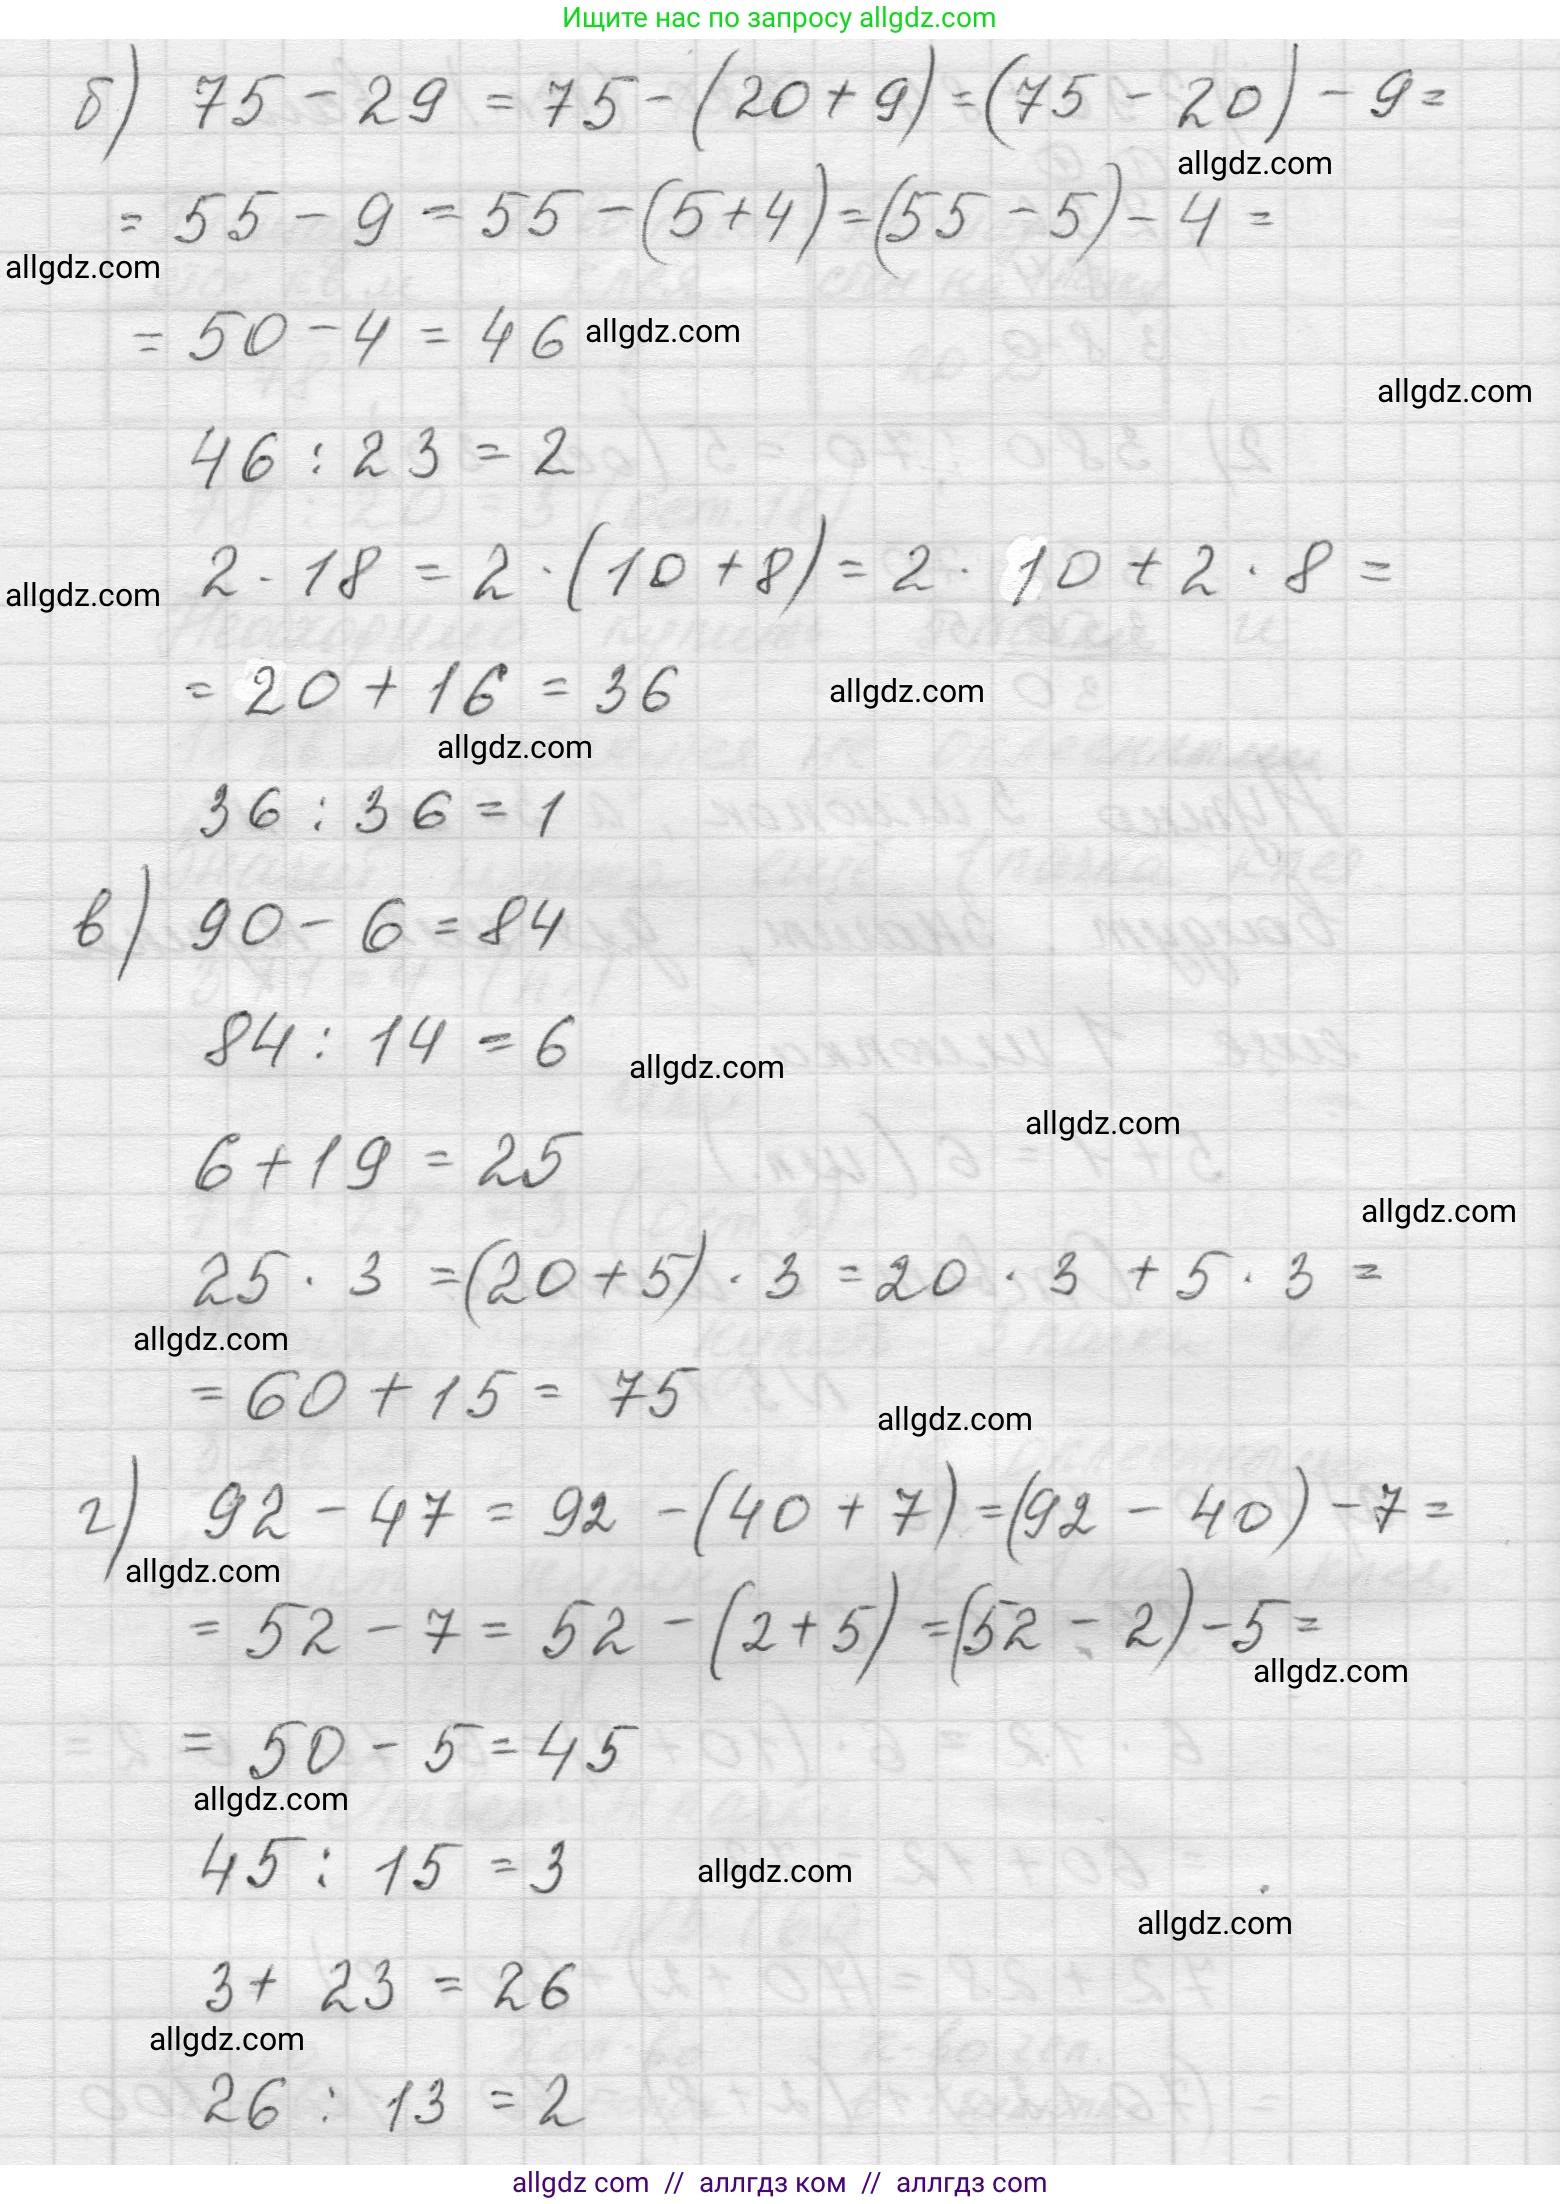 Ищите нас по запросу allgdz.com
б) 75 - 29 = 75 - (20 + 9) = (75 - 20) - 9 =
allgdz.com
= 55 - 9 = 55 - (5 + 4) = (55 - 5) - 4 =
allgdz.com
= 50 - 4 = 46 allgdz.com
allgdz.com
46 : 23 = 2
2 · 18 = 2 · (10 + 8) = 2 · 10 + 2 · 8 =
allgdz.com
= 20 + 16 = 36 allgdz.com
allgdz.com
36 : 36 = 1
в) 90 - 6 = 84
84 : 14 = 6
allgdz.com
allgdz.com
6 + 19 = 25
allgdz.com
25 · 3 = (20 + 5) · 3 = 20 · 3 + 5 · 3 =
allgdz.com
= 60 + 15 = 75
allgdz.com
г) 92 - 47 = 92 - (40 + 7) = (92 - 40) - 7 =
allgdz.com
= 52 - 7 = 52 - (2 + 5) = (52 - 2) - 5 =
allgdz.com
= 50 - 5 = 45
allgdz.com
45 : 15 = 3 allgdz.com
allgdz.com
3 + 23 = 26
allgdz.com
26 : 13 = 2
allgdz com // аллгдз ком // аллгдз com